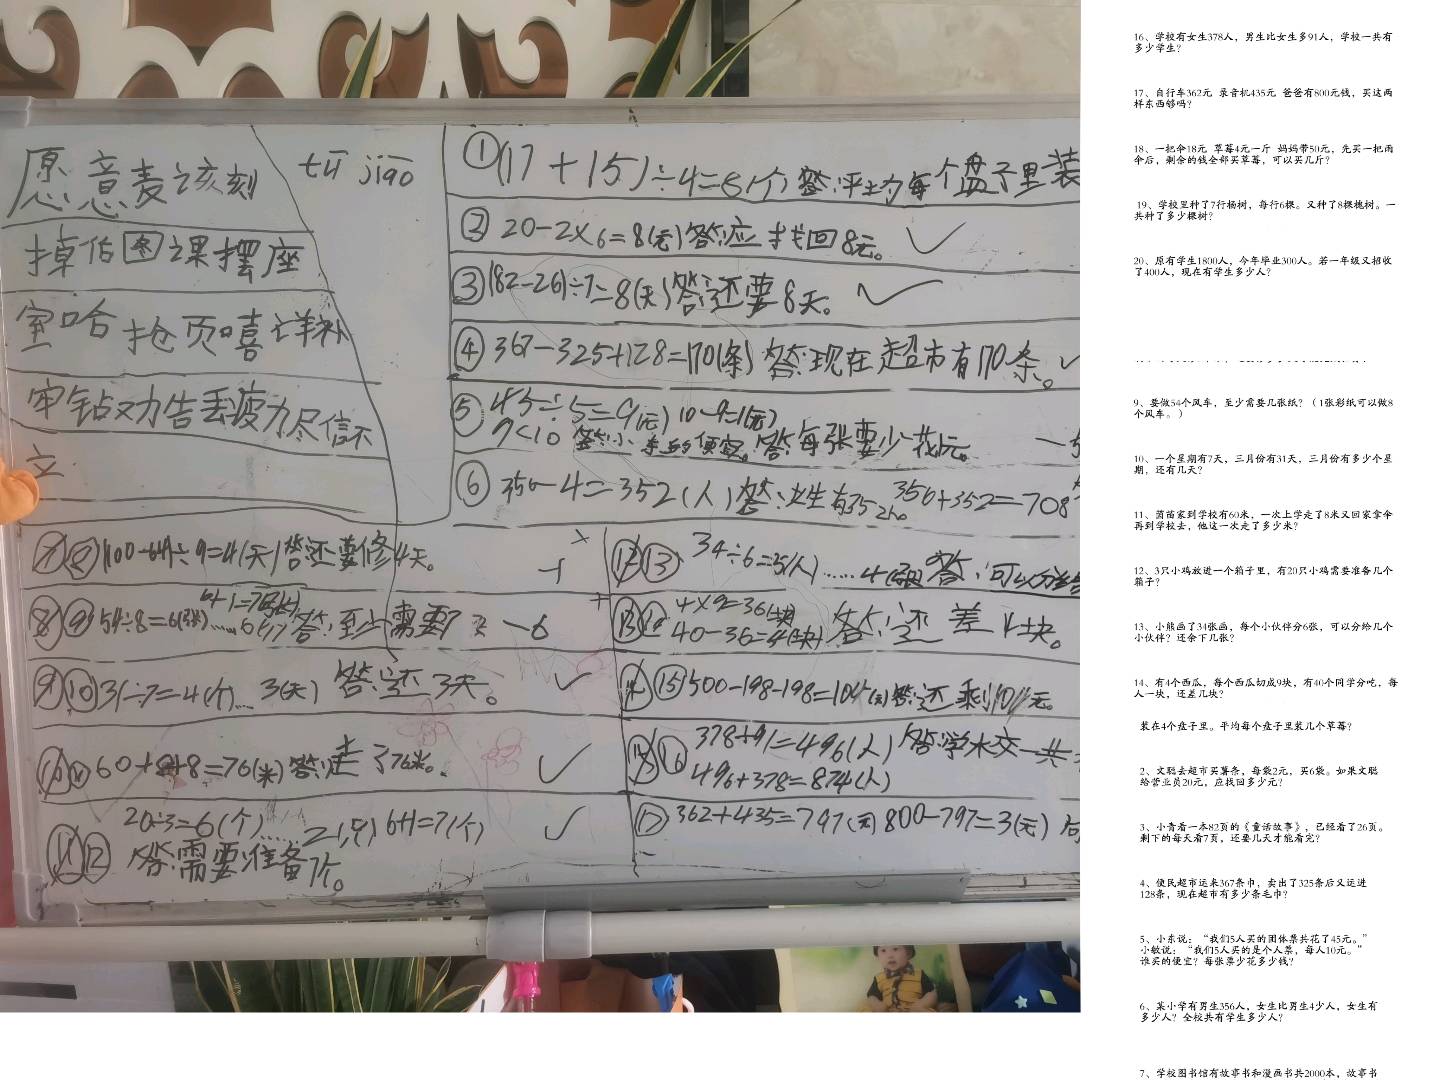 愿意麦该刻
jiāo
掉伯图课摆座
室哈抢页嘻详补
牢钻劝告丢疲力尽信不
立
①(17+15)÷4=8(个)答:平均每个盘子里装
②20-2×6=8(元)答:应找回8元。
③(82-26)÷7=8(天)答:还要8天。
④367-325+128=170(条)答:现在超市有170条。
⑤45÷5=9(元)10-9=1(元)
9<10
答:每张要少花1元。
⑥356-4=352(人)答:女生有352人。356+352=708
⑧(100-64)÷9=4(天)答:还要修4天。
6+1=7(张)
⑨54÷8=6(张)……6(个)答:至少需要7
-6
⑩31÷7=4(个)……3(天)答:还3天。
60+8+8=76(米)答:走了76米。
20÷3=6(个)……2(只)6+1=7(个)
⑫答:需要准备7个。
⑬34÷6=5(人)……4(张)答:可以分给
4×9=36(块)
40-36=4(块)答:还差4块。
⑮500-198-198=104(元)答:还剩104元。
⑯378+91=496(人)答:学木交一共
496+378=874(人)
⑰362+435=797(元)800-797=3(元)
16、学校有女生378人，男生比女生多91人，学校一共有
多少学生？
17、自行车362元 录音机435元 爸爸有800元钱，买这两
样东西够吗？
18、一把伞18元 草莓4元一斤 妈妈带50元，先买一把雨
伞后，剩余的钱全部买草莓，可以买几斤？
19、学校里种了7行杨树，每行6棵。又种了8棵槐树。一
共种了多少棵树？
20、原有学生1800人，今年毕业300人。若一年级又招收
了400人，现在有学生多少人？
9、要做54个风车，至少需要几张纸？（1张彩纸可以做8
个风车。）
10、一个星期有7天，三月份有31天，三月份有多少个星
期，还有几天？
11、茵茵家到学校有60米，一次上学走了8米又回家拿伞
再到学校去，他这一次走了多少米？
12、3只小鸡放进一个箱子里，有20只小鸡需要准备几个
箱子？
13、小熊画了34张画，每个小伙伴分6张，可以分给几个
小伙伴？还余下几张？
14、有4个西瓜，每个西瓜切成9块，有40个同学分吃，每
人一块，还差几块？
装在4个盘子里。平均每个盘子里装几个草莓？
2、文聪去超市买薯条，每袋2元，买6袋。如果文聪
给营业员20元，应找回多少元？
3、小青看一本82页的《童话故事》，已经看了26页。
剩下的每天看7页，还要几天才能看完？
4、便民超市运来367条巾，卖出了325条后又运进
128条，现在超市有多少条毛巾？
5、小东说：“我们5人买的团体票共花了45元。”
小敏说：“我们5人买的是个人票，每人10元。”
谁买的便宜？每张票少花多少钱？
6、某小学有男生356人，女生比男生4少人，女生有
多少人？全校共有学生多少人？
7、学校图书馆有故事书和漫画书共2000本，故事书